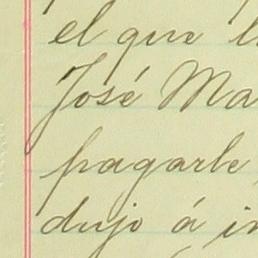 el que
José
pagarle
dujo á